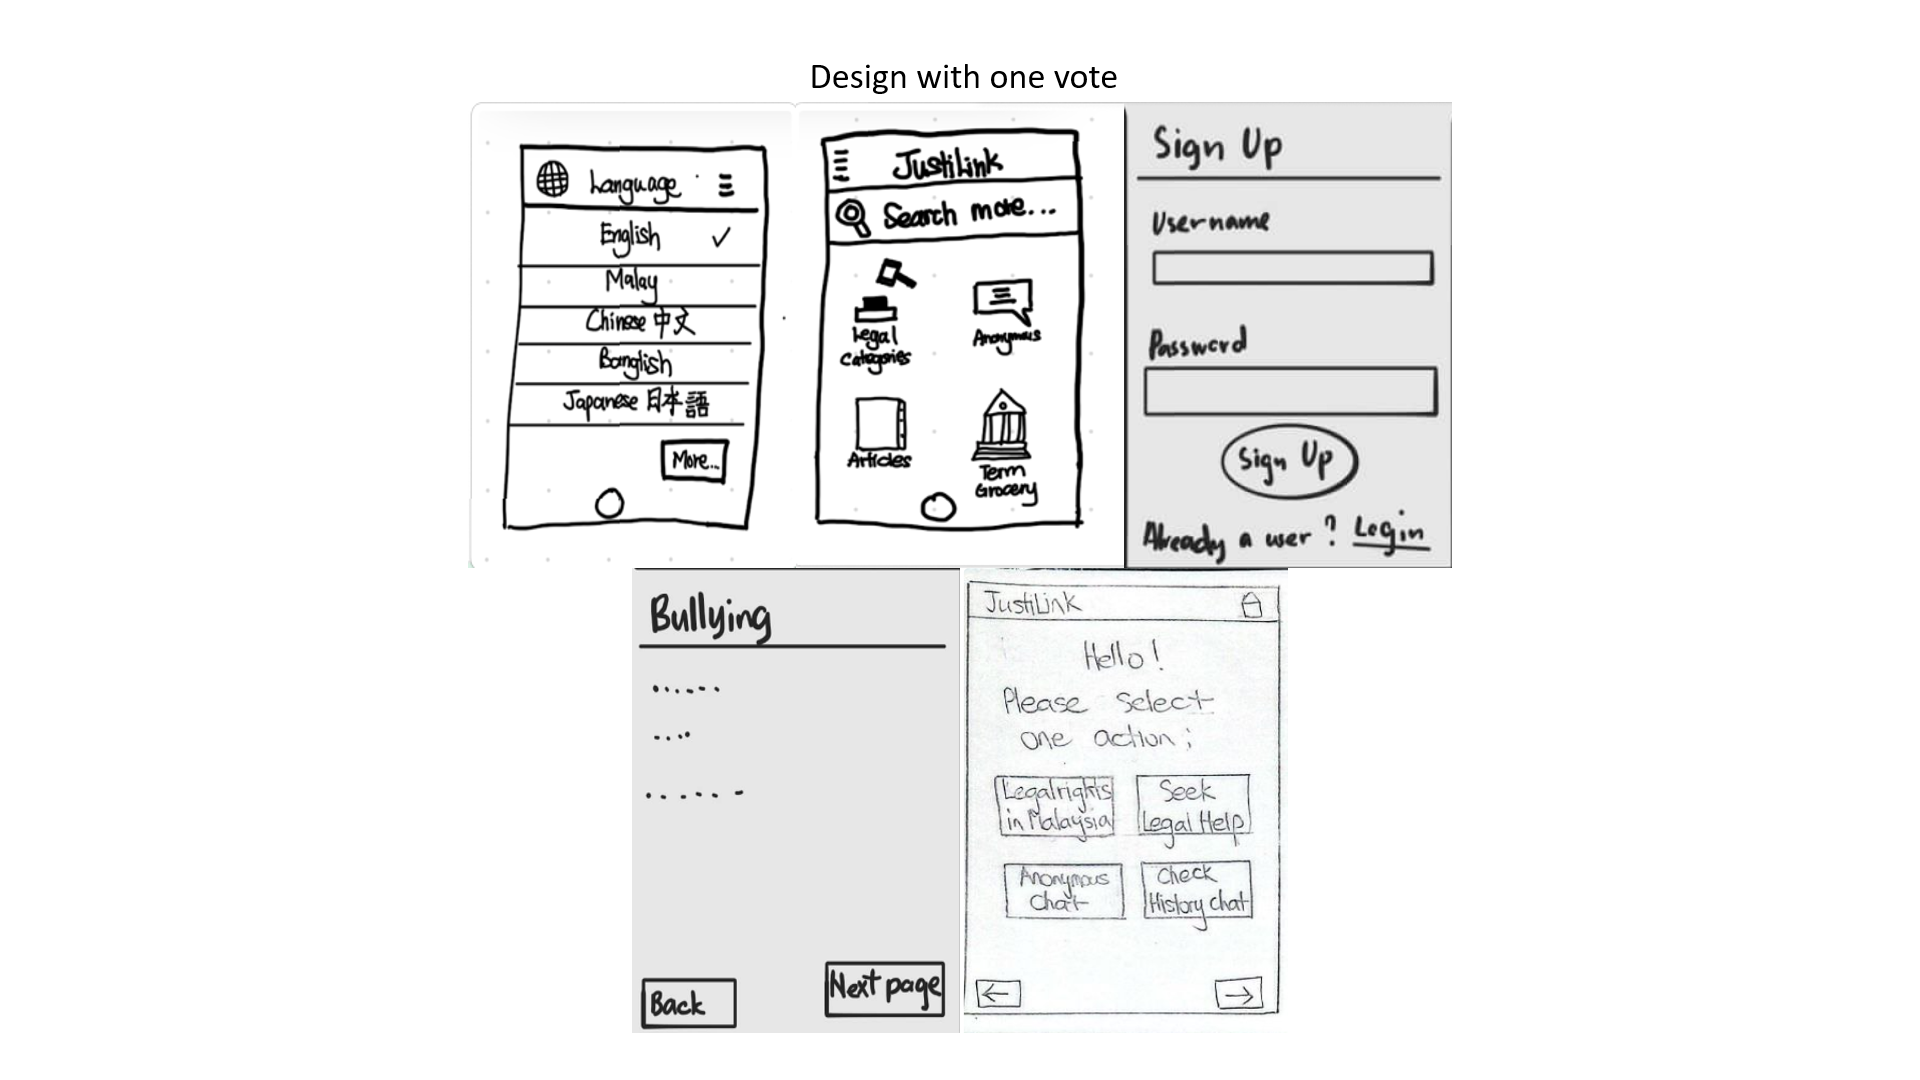 Design with one vote
Language
English
Malay
Chinese 中文
Banglish
Japanese 日本語
More...
JustiLink
Search more...
Legal
Categories
Anonymous
Articles
Term
Grocery
Sign Up
Username
Password
Sign Up
Already a user? Login
Bullying
Back
Next page
JustiLink
Hello!
Please Select
one action;
Legalrights
in Malaysia
Seek
Legal Help
Anonymous
Chat
Check
History chat